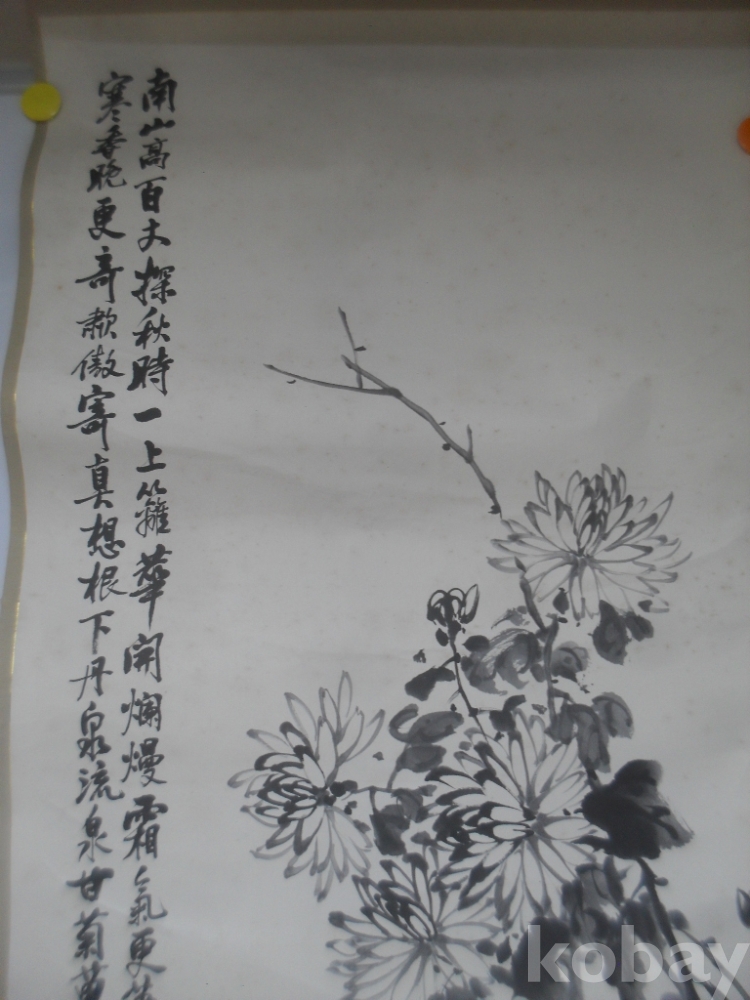 南山高百丈探秋時一上籬華開爛熳霜氣更
寒香晚更奇歗傲寄真想根下丹泉流泉甘菊
kobay